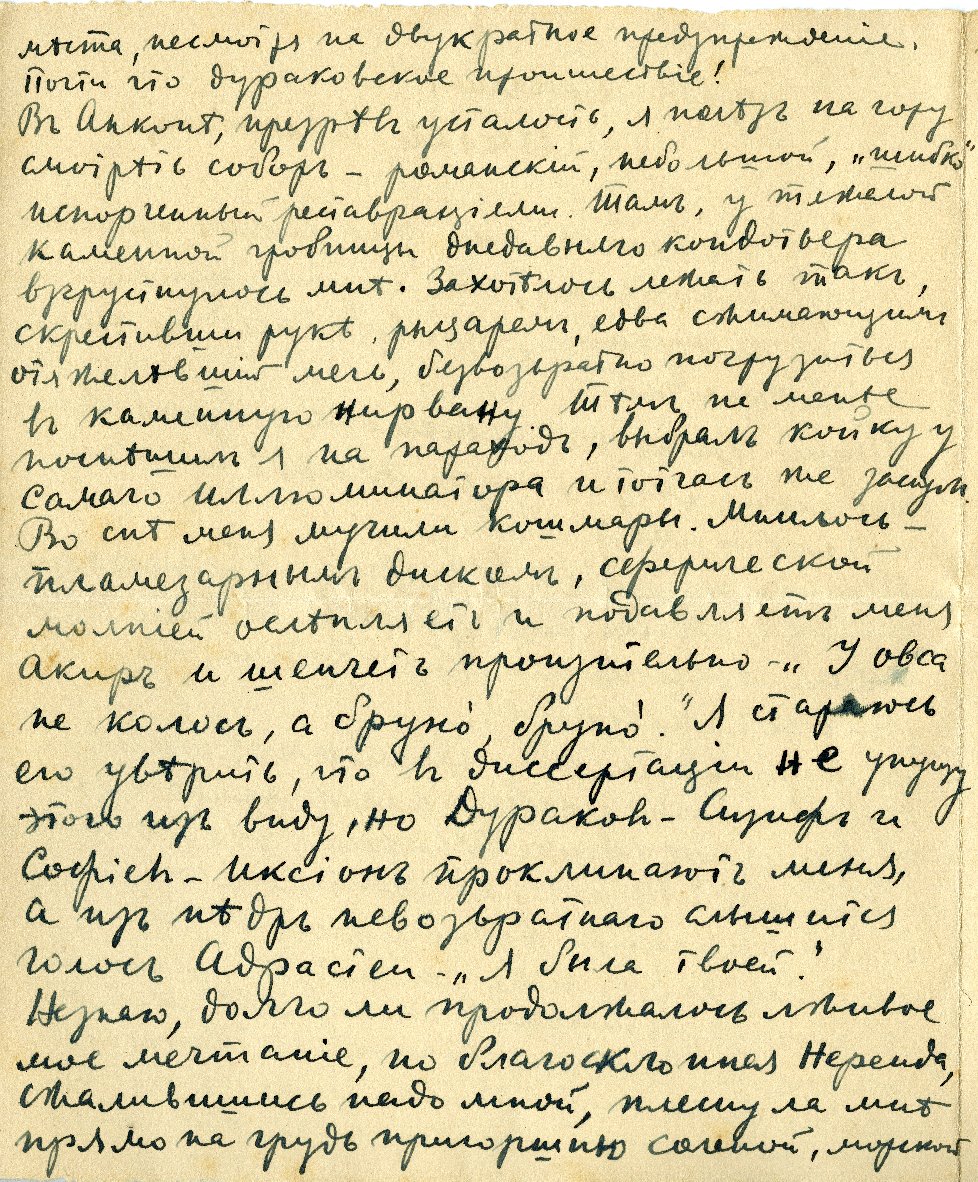 мѣста, несмотря на двукратное предупрежденіе.
Почти что дураковское происшествіе!
Въ Анконѣ, презрѣвъ усталость, я полѣзъ на гору
смотрѣть соборъ – романскій, небольшой, „шибко"
испорченный реставраціями. Тамъ, у тяжелой
каменной гробницы давнего кондотьера
взгрустнулось мнѣ. Захотѣлось лежать такъ,
скрестивши рукѣ, рыцаремъ, едва сжимающимъ
отяжелѣвшій мечъ, безвозвратно погрузиться
въ каменную нирвану. Тѣмъ не менѣе
поспѣшилъ я на параходъ, выбралъ койку у
самаго иллюминатора и тотчасъ же заснулъ
Во снѣ меня мучили кошмары. Мнилось –
пламезарнымъ дискомъ, сферической
молніей ослѣпляетъ и подавляетъ меня
Акиръ и шепчетъ пронзительно – „У овса
не колосъ, а бруно́, бруно́." Я стараюсь
его увѣрить, что въ диссертаціи не упущу
этого изъ виду, но Дураковъ – Сизифъ и
Софіевъ – Иксіонъ проклинаютъ меня,
а изъ нѣдръ невозвратнаго слышится
голосъ Адрастеи – „Я была твоей."
Незнаю, долго ли продолжалось лживое
мое мечтаніе, но благосклонная Нереида,
сжалившись надо мной, плеснула мнѣ
прямо на грудь пригоршню соленой, морской